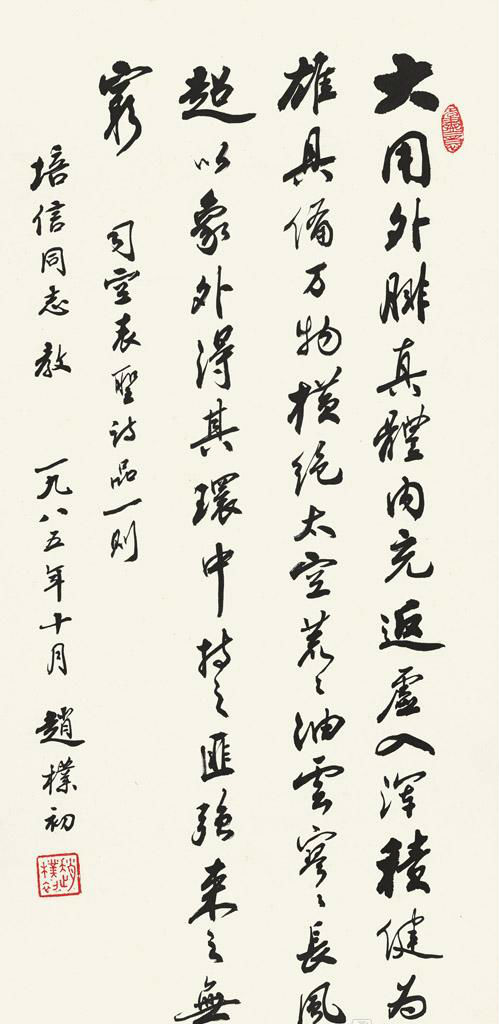 大用外腓真體内充返虛入渾積健为
雄具備万物横绝太空荒〻油雲寥〻長風
超以象外得其環中持之匪强来之無
窮
司空表聖诗品一则
培信同志教
一九八五年十月 趙樸初
趙樸初